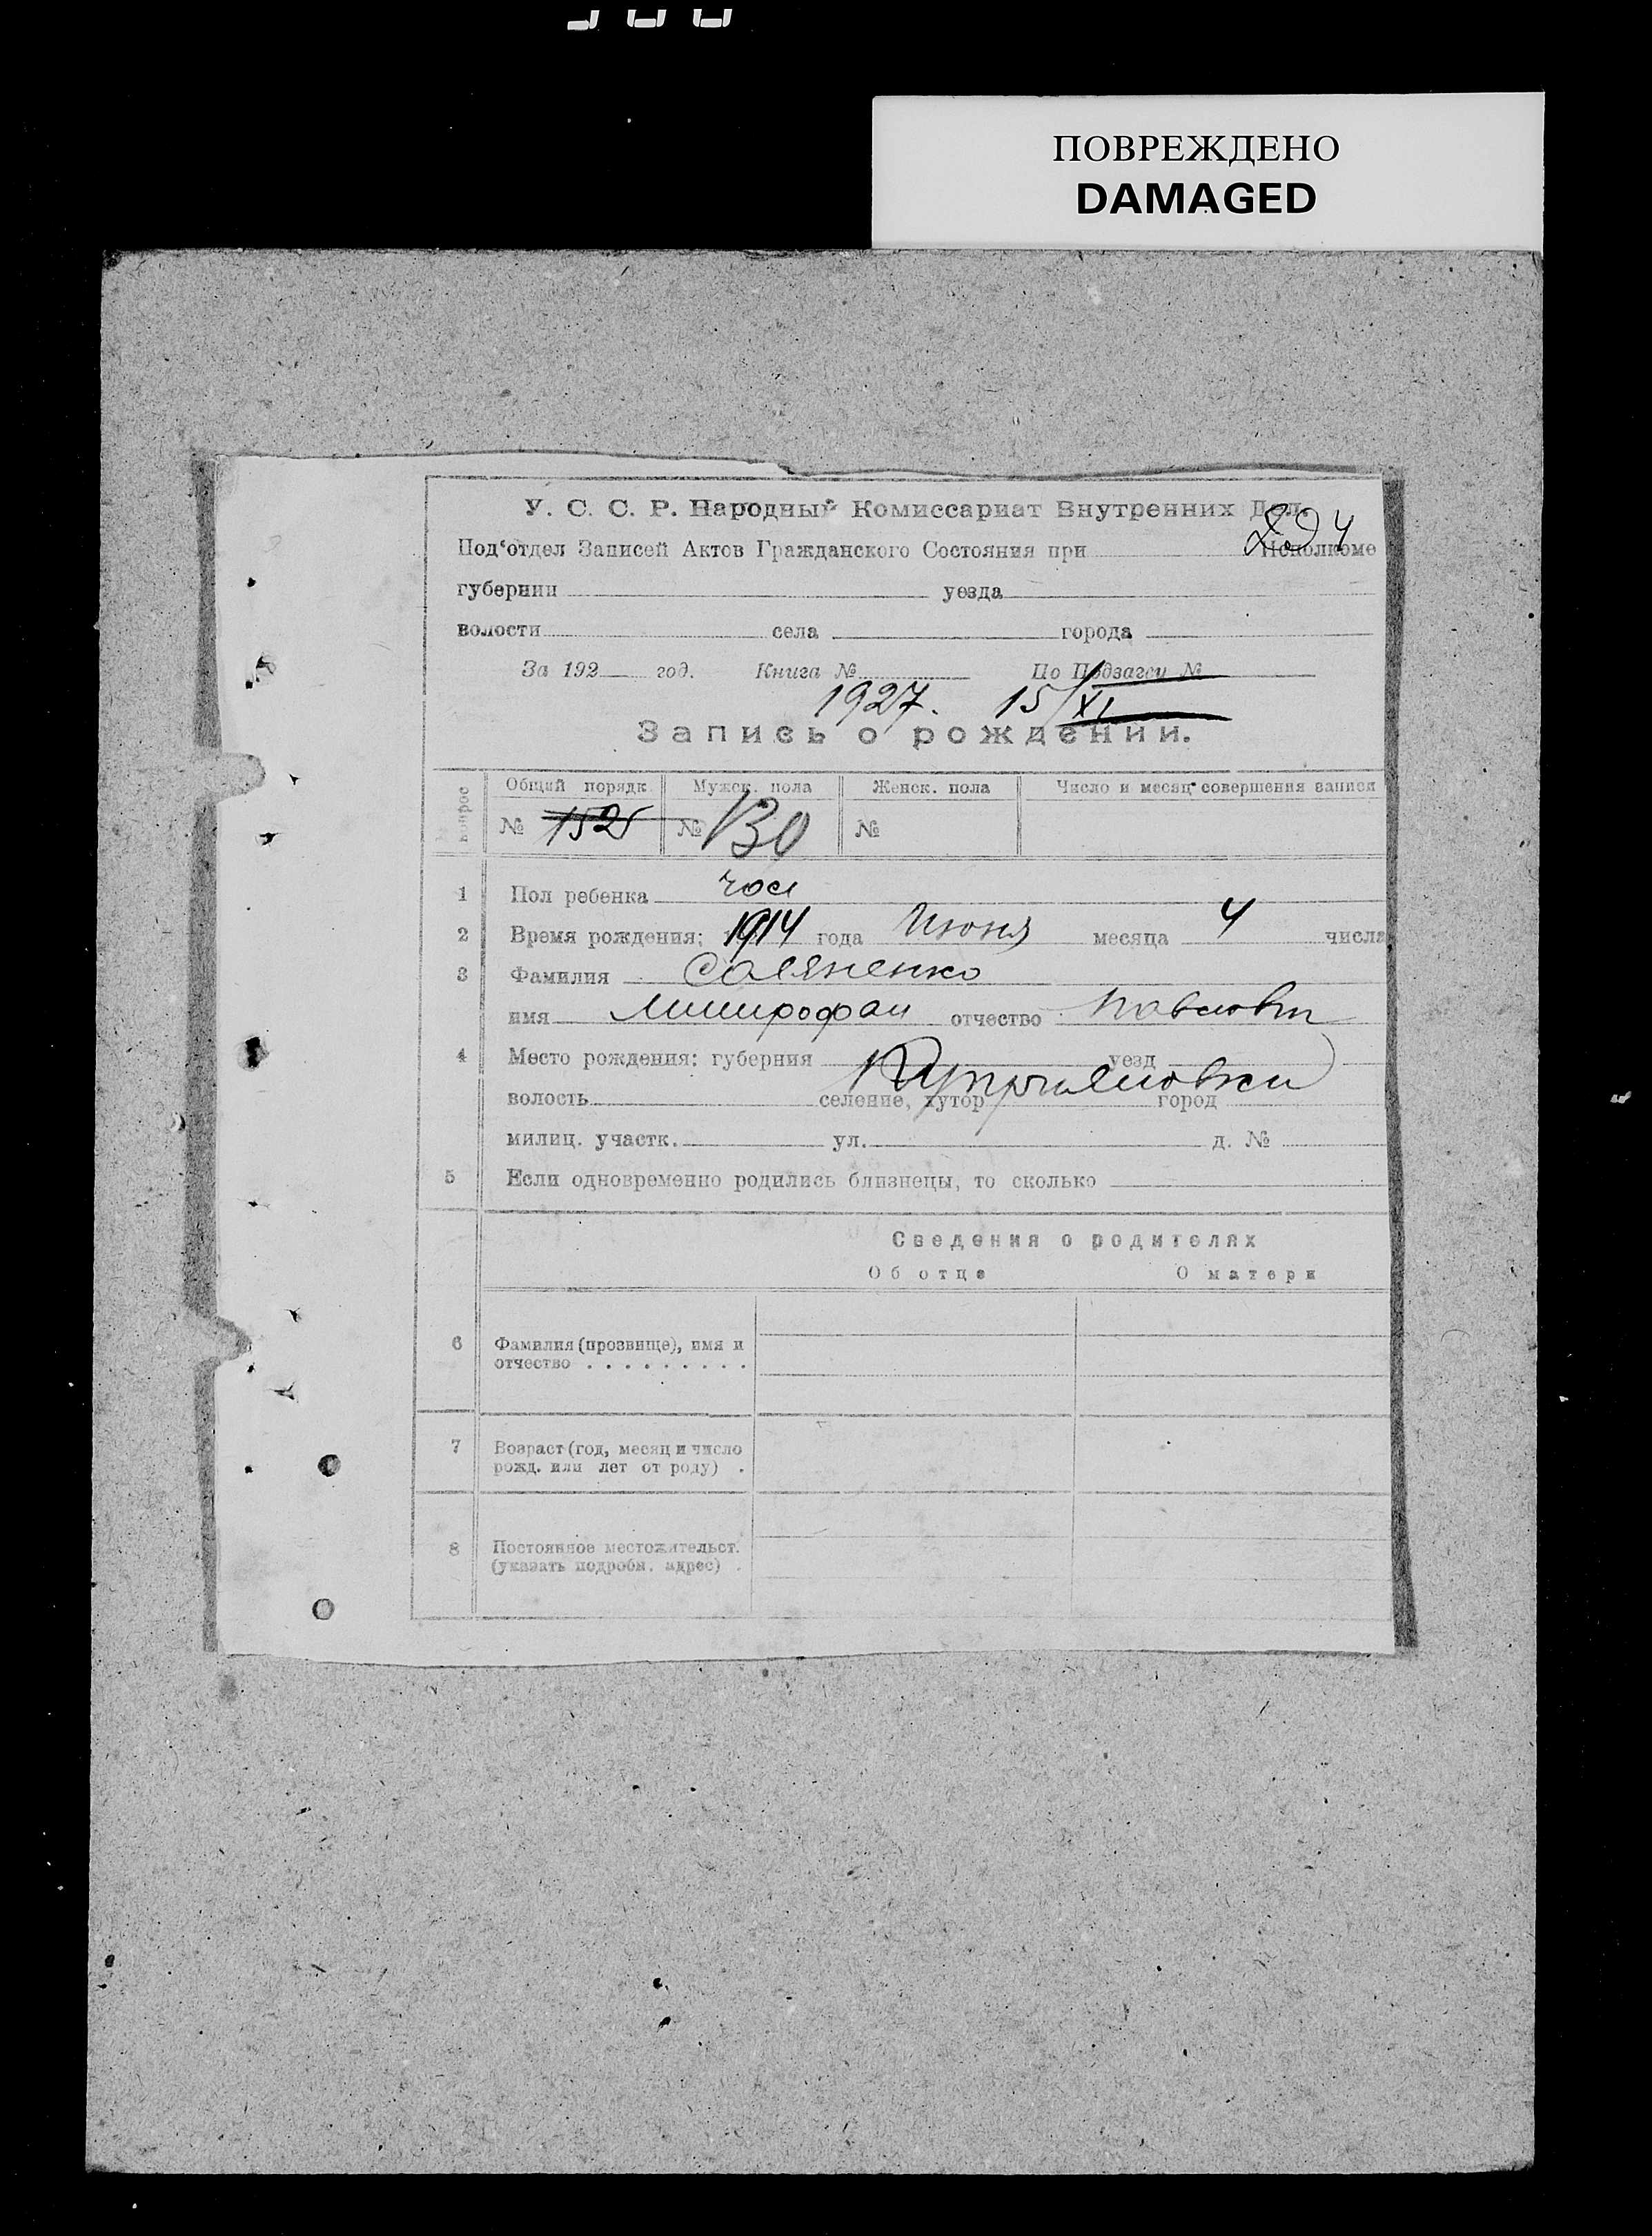 ПОВРЕЖДЕНО
DAMAGED
У. С. С. Р. Народный Комиссариат Внутренних Дел.
Под‘отдел Записей Актов Гражданского Состояния при Исполкоме
губернии уезда
волости села города
За 192 год. Книга № По Подзагсу №
1927. 15/XI
Запись о рождении.
вопрос Общий порядк Мужск. пола Женск. пола Число и месяц совершения записи
№ 152 № 130 №
1 Пол ребенка чол
2 Время рождения: 1914 года Июня месяца 4 числа
3 Фамилия Соляненко
имя Митрофан отчество Павлович
4 Место рождения: губерния уезд
Куприяновки
волость селение, хутор город
милиц. участк. ул. д. №
5 Если одновременно родились близнецы, то сколько
Сведения о родителях
Об отце О матери
6 Фамилия (прозвище), имя и
отчество . . . . . . . . .
7 Возраст (год, месяц и число
рожд. или лет от роду) .
8 Постоянное местожительст.
(указать подробн. адрес) .